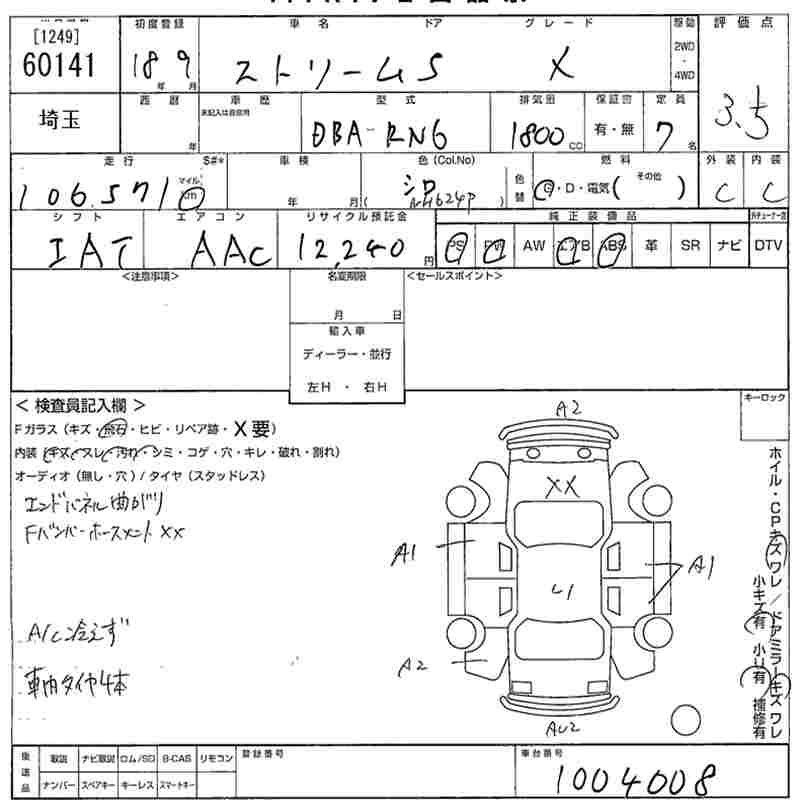 [1249]
60141
初度登録 車名 ドア グレード 駆動 評価点
18年 9月 ストリームS X 2WD・4WD
3.5
埼玉
西暦 車歴 型式 排気量 保証書 定員
年 未記入は自家用 DBA-RN6 1800CC 有・無 7名
走行 S#* 車検 色(Col.No) 燃料 外装 内装
106,571 マイル km 年 月 ( シロ NH624P ) 色替 G・D・電気( その他 ) C C
シフト エアコン リサイクル預託金 純正装備品
IAT AAC 12,240円 PS PW AW エアB ABS 革 SR ナビ DTV
<注意事項> 名変期限 <セールスポイント>
月 日
輸入車
ディーラー・並行
左H ・ 右H
< 検査員記入欄 > キーロック
Fガラス (キズ・飛石・ヒビ・リペア跡・X要)
内装 (キズ・スレ・汚れ・シミ・コゲ・穴・キレ・破れ・割れ)
オーディオ (無し・穴) / タイヤ (スタッドレス)
エンドパネル曲がり
Fバンパーホースメント XX
A/C 冷えず
車内タイヤ4本
A2
XX
A1
A1
U1
A2
AU2
ホイル・CPキズワレ/ドアミラーキズワレ
小キズ有 小U有 補修有
後送品 取説 ナビ取説 ロム/SD B-CAS リモコン 登録番号 車台番号
ナンバー スペアキー キーレス スマートキー 1004008